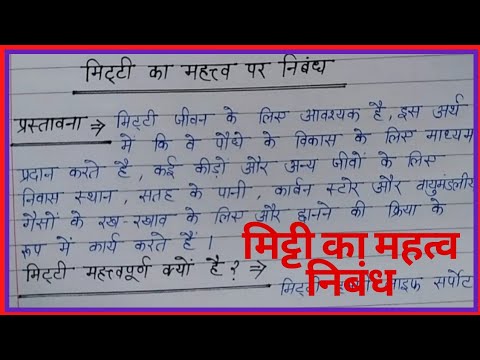 मिट्टी का महत्त्व पर निबंध
प्रस्तावना ⇒ मिट्टी जीवन के लिए आवश्यक है, इस अर्थ
में कि वे पौधे के विकास के लिए माध्यम
प्रदान करते है, कई कीड़ों और अन्य जीवों के लिए
निवास स्थान, सतह के पानी, कार्बन स्टोर और वायुमंडलीय
गैसों के रख-रखाव के लिए और छानने की क्रिया के
रूप में कार्य करते हैं।
मिट्टी महत्त्वपूर्ण क्यों है? ⇒
मिट्टी लाइफ सर्पोट
मिट्टी का महत्व
निबंध